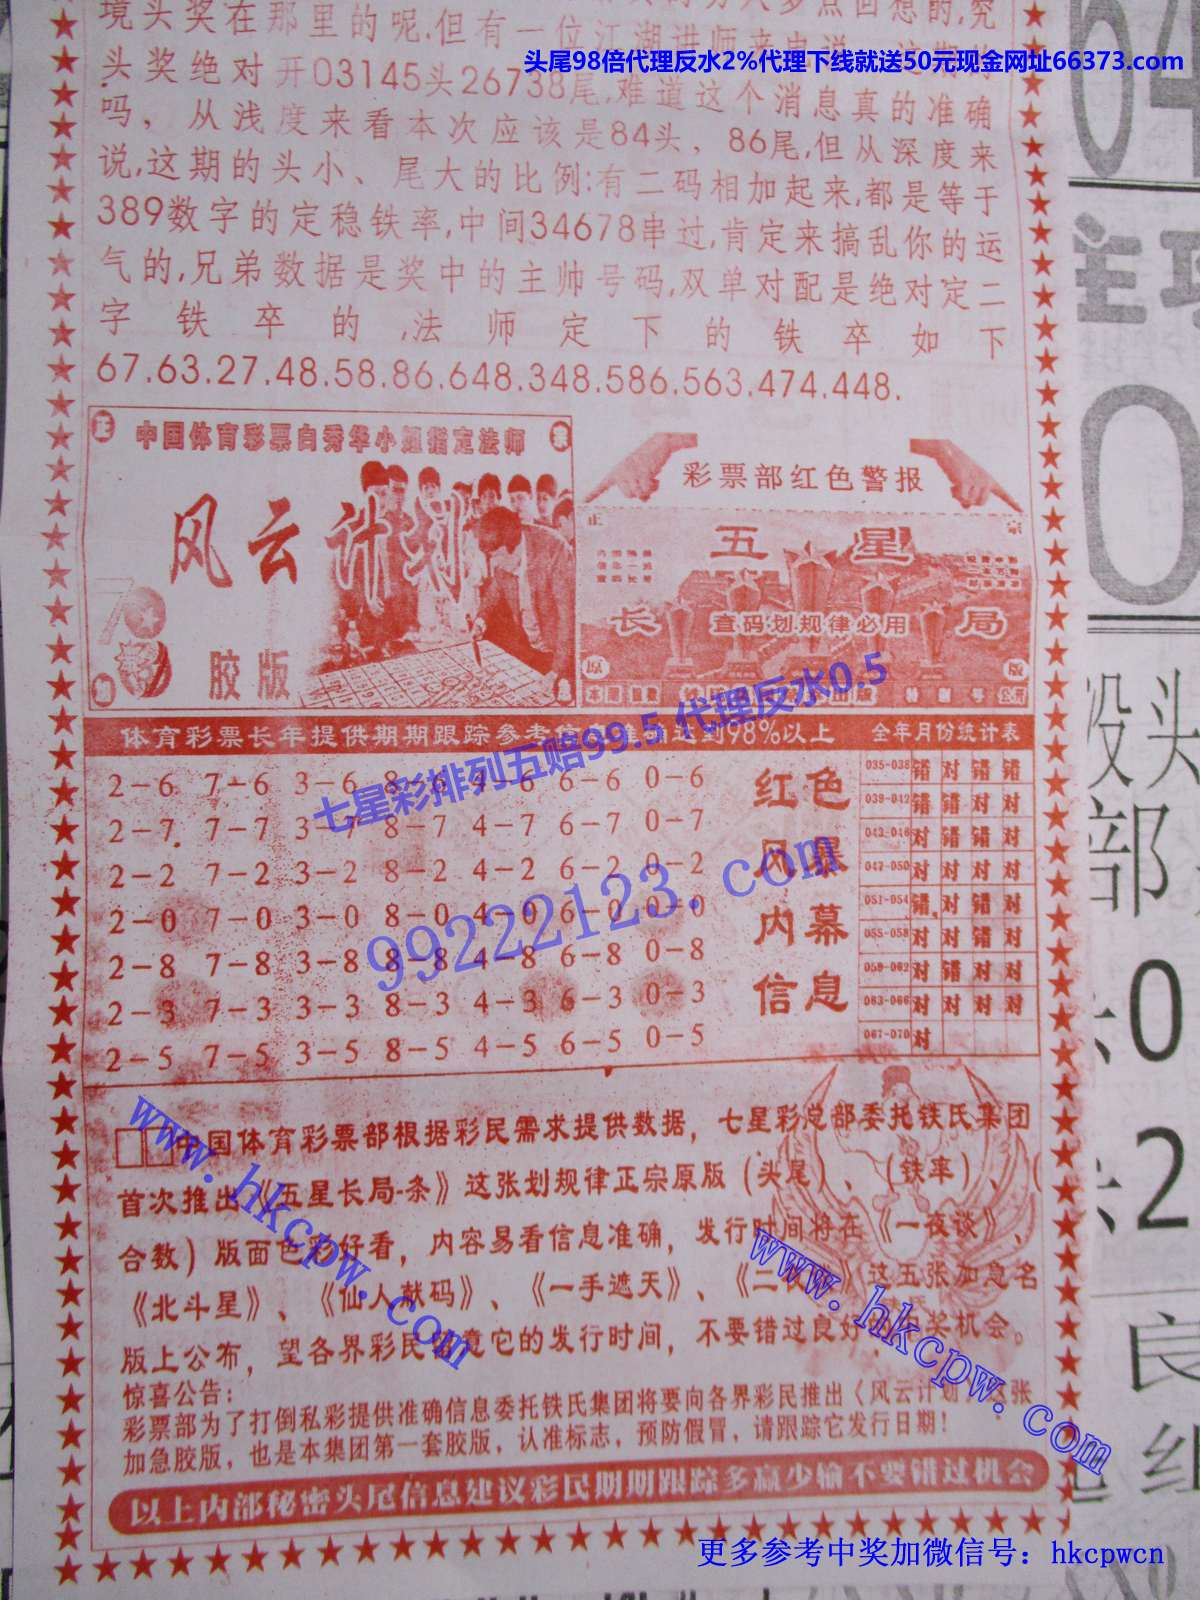 境头奖在那里的呢,但有一位江湖
头尾98倍代理反水2%代理下线就送50元现金网址66373.com
头奖绝对开03145头26738尾,难道这个消息真的准确
吗，从浅度来看本次应该是84头，86尾,但从深度来
说,这期的头小、尾大的比例:有二码相加起来,都是等于
389数字的定稳铁率,中间34678串过,肯定来搞乱你的运
气的,兄弟数据是奖中的主帅号码,双单对配是绝对定二
字铁卒的,法师定下的铁卒如下
67.63.27.48.58.86.648.348.586.563.474.448.
正 宗
中国体育彩票白秀华小姐指定法师
风云计划
胶版
彩票部红色警报
正 宗
五星
长 查码划规律必用 局
原 版
七星彩排列五赔99.5 代理反水0.5
体育彩票长年提供期期跟踪参考 准确达到98%以上 全年月份统计表
2-6 7-6 3-6 8-6 4-6 6-6 0-6
2-7 7-7 3-7 8-7 4-7 6-7 0-7
2-2 7-2 3-2 8-2 4-2 6-2 0-2
2-0 7-0 3-0 8-0 4-0 6-0 0-0
2-8 7-8 3-8 8-8 4-8 6-8 0-8
2-3 7-3 3-3 8-3 4-3 6-3 0-3
2-5 7-5 3-5 8-5 4-5 6-5 0-5
红色
风暴
内幕
信息
035-038 错 对 错 错
039-042 错 错 对 对
043-046 对 错 对 对
047-050 对 对 对 对
051-054 错 对 错 对
055-058 对 对 错 对
059-062 对 错 对 对
063-066 对 对 对 对
067-070 对
99222123.com
中国体育彩票部根据彩民需求提供数据，七星彩总部委托铁氏集团
首次推出《五星长局-条》这张划规律正宗原版(头尾)、(铁率)、(
合数)版面色彩好看，内容易看信息准确，发行时间将在《一夜谈》、
《北斗星》、《仙人献码》、《一手遮天》、 这五张加急名
版上公布，望各界彩民 意它的发行时间，不要错过良好 奖机会。
惊喜公告:
彩票部为了打倒私彩提供准确信息委托铁氏集团将要向各界彩民推出《风云计划》这张
加急胶版，也是本集团第一套胶版，认准标志，预防假冒，请跟踪它发行日期!
以上内部秘密头尾信息建议彩民期期跟踪多赢少输不要错过机会
www.hkcpw.com
www.hkcpw.com
更多参考中奖加微信号：hkcpwcn
64
0
头
部
0
2
良
组